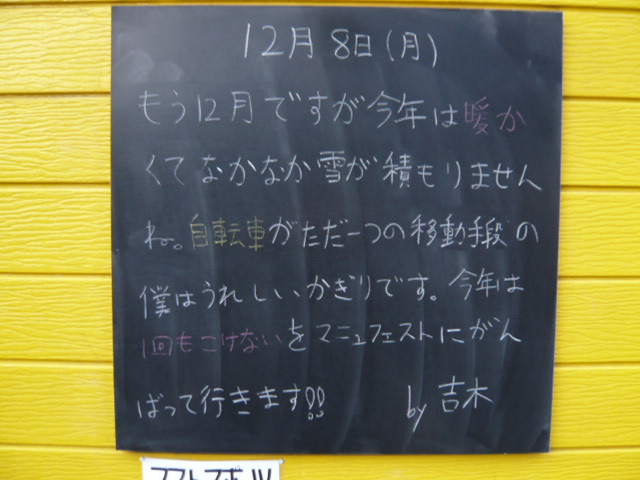 12月8日(月)
もう12月ですが今年は暖か
くてなかなか雪が積もりません
ね。自転車がただ一つの移動手段の
僕はうれしいかぎりです。今年は
1回もこけないをマニュフェストにがん
ばって行きます!! by 吉木